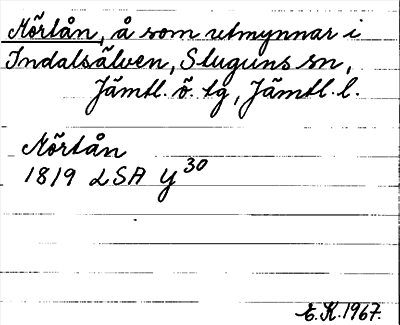 Mörtån, å som utmynnar i
Indalsälven, Stuguns sn,
Jämtl. ö. tg, Jämtl. l.
Mörtån
1819 LSA Y 30
E. K. 1967.